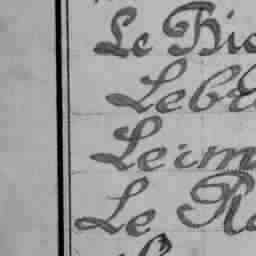 Le Bic
Lebr
Leim
Le Ro